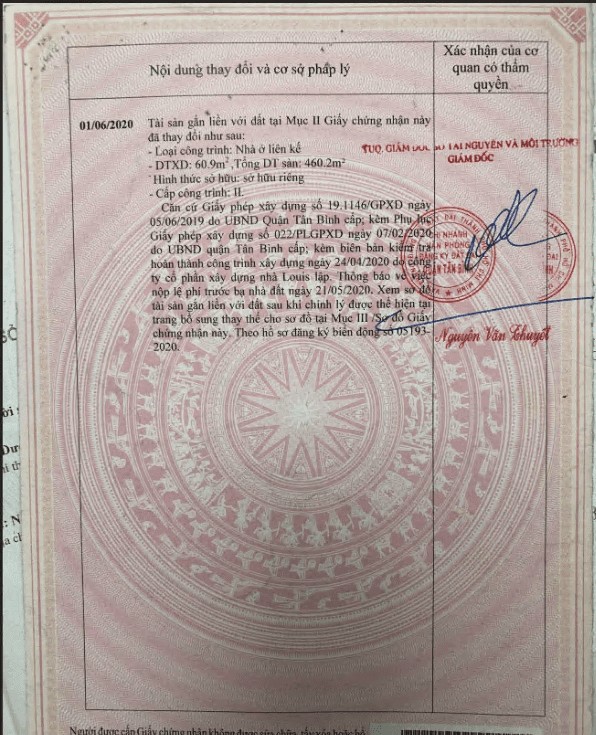 Nội dung thay đổi và cơ sở pháp lý
Xác nhận của cơ
quan có thẩm
quyền
01/06/2020 Tài sản gắn liền với đất tại Mục II Giấy chứng nhận này
đã thay đổi như sau:
- Loại công trình: Nhà ở liên kế
- DTXD: 60.9m², Tổng DT sàn: 460.2m²
Hình thức sở hữu: sở hữu riêng
- Cấp công trình: II.
Căn cứ Giấy phép xây dựng số 19.1146/GPXD ngày
05/06/2019 do UBND Quận Tân Bình cấp; kèm Phụ lục
Giấy phép xây dựng số 022/PLGPXD ngày 07/02/2020
do UBND quận Tân Bình cấp; kèm biên bản kiểm tra
hoàn thành công trình xây dựng ngày 24/04/2020 do công
ty cổ phần xây dựng nhà Louis lập. Thông báo về việc
nộp lệ phí trước bạ nhà đất ngày 21/05/2020. Xem sơ đồ
tài sản gắn liền với đất sau khi chỉnh lý được thể hiện tại
trang bổ sung thay thế cho sơ đồ tại Mục III /Sơ đồ Giấy
chứng nhận này. Theo hồ sơ đăng ký biến động số 05193-
2020.
TUQ. GIÁM ĐỐC SỞ TÀI NGUYÊN VÀ MÔI TRƯỜNG
GIÁM ĐỐC
CHI NHÁNH
VĂN PHÒNG
ĐĂNG KÝ ĐẤT ĐAI
QUẬN TÂN BÌNH
Nguyễn Văn Thuyết
Người được cấp Giấy chứng nhận không được sửa chữa, tẩy xóa hoặc bổ